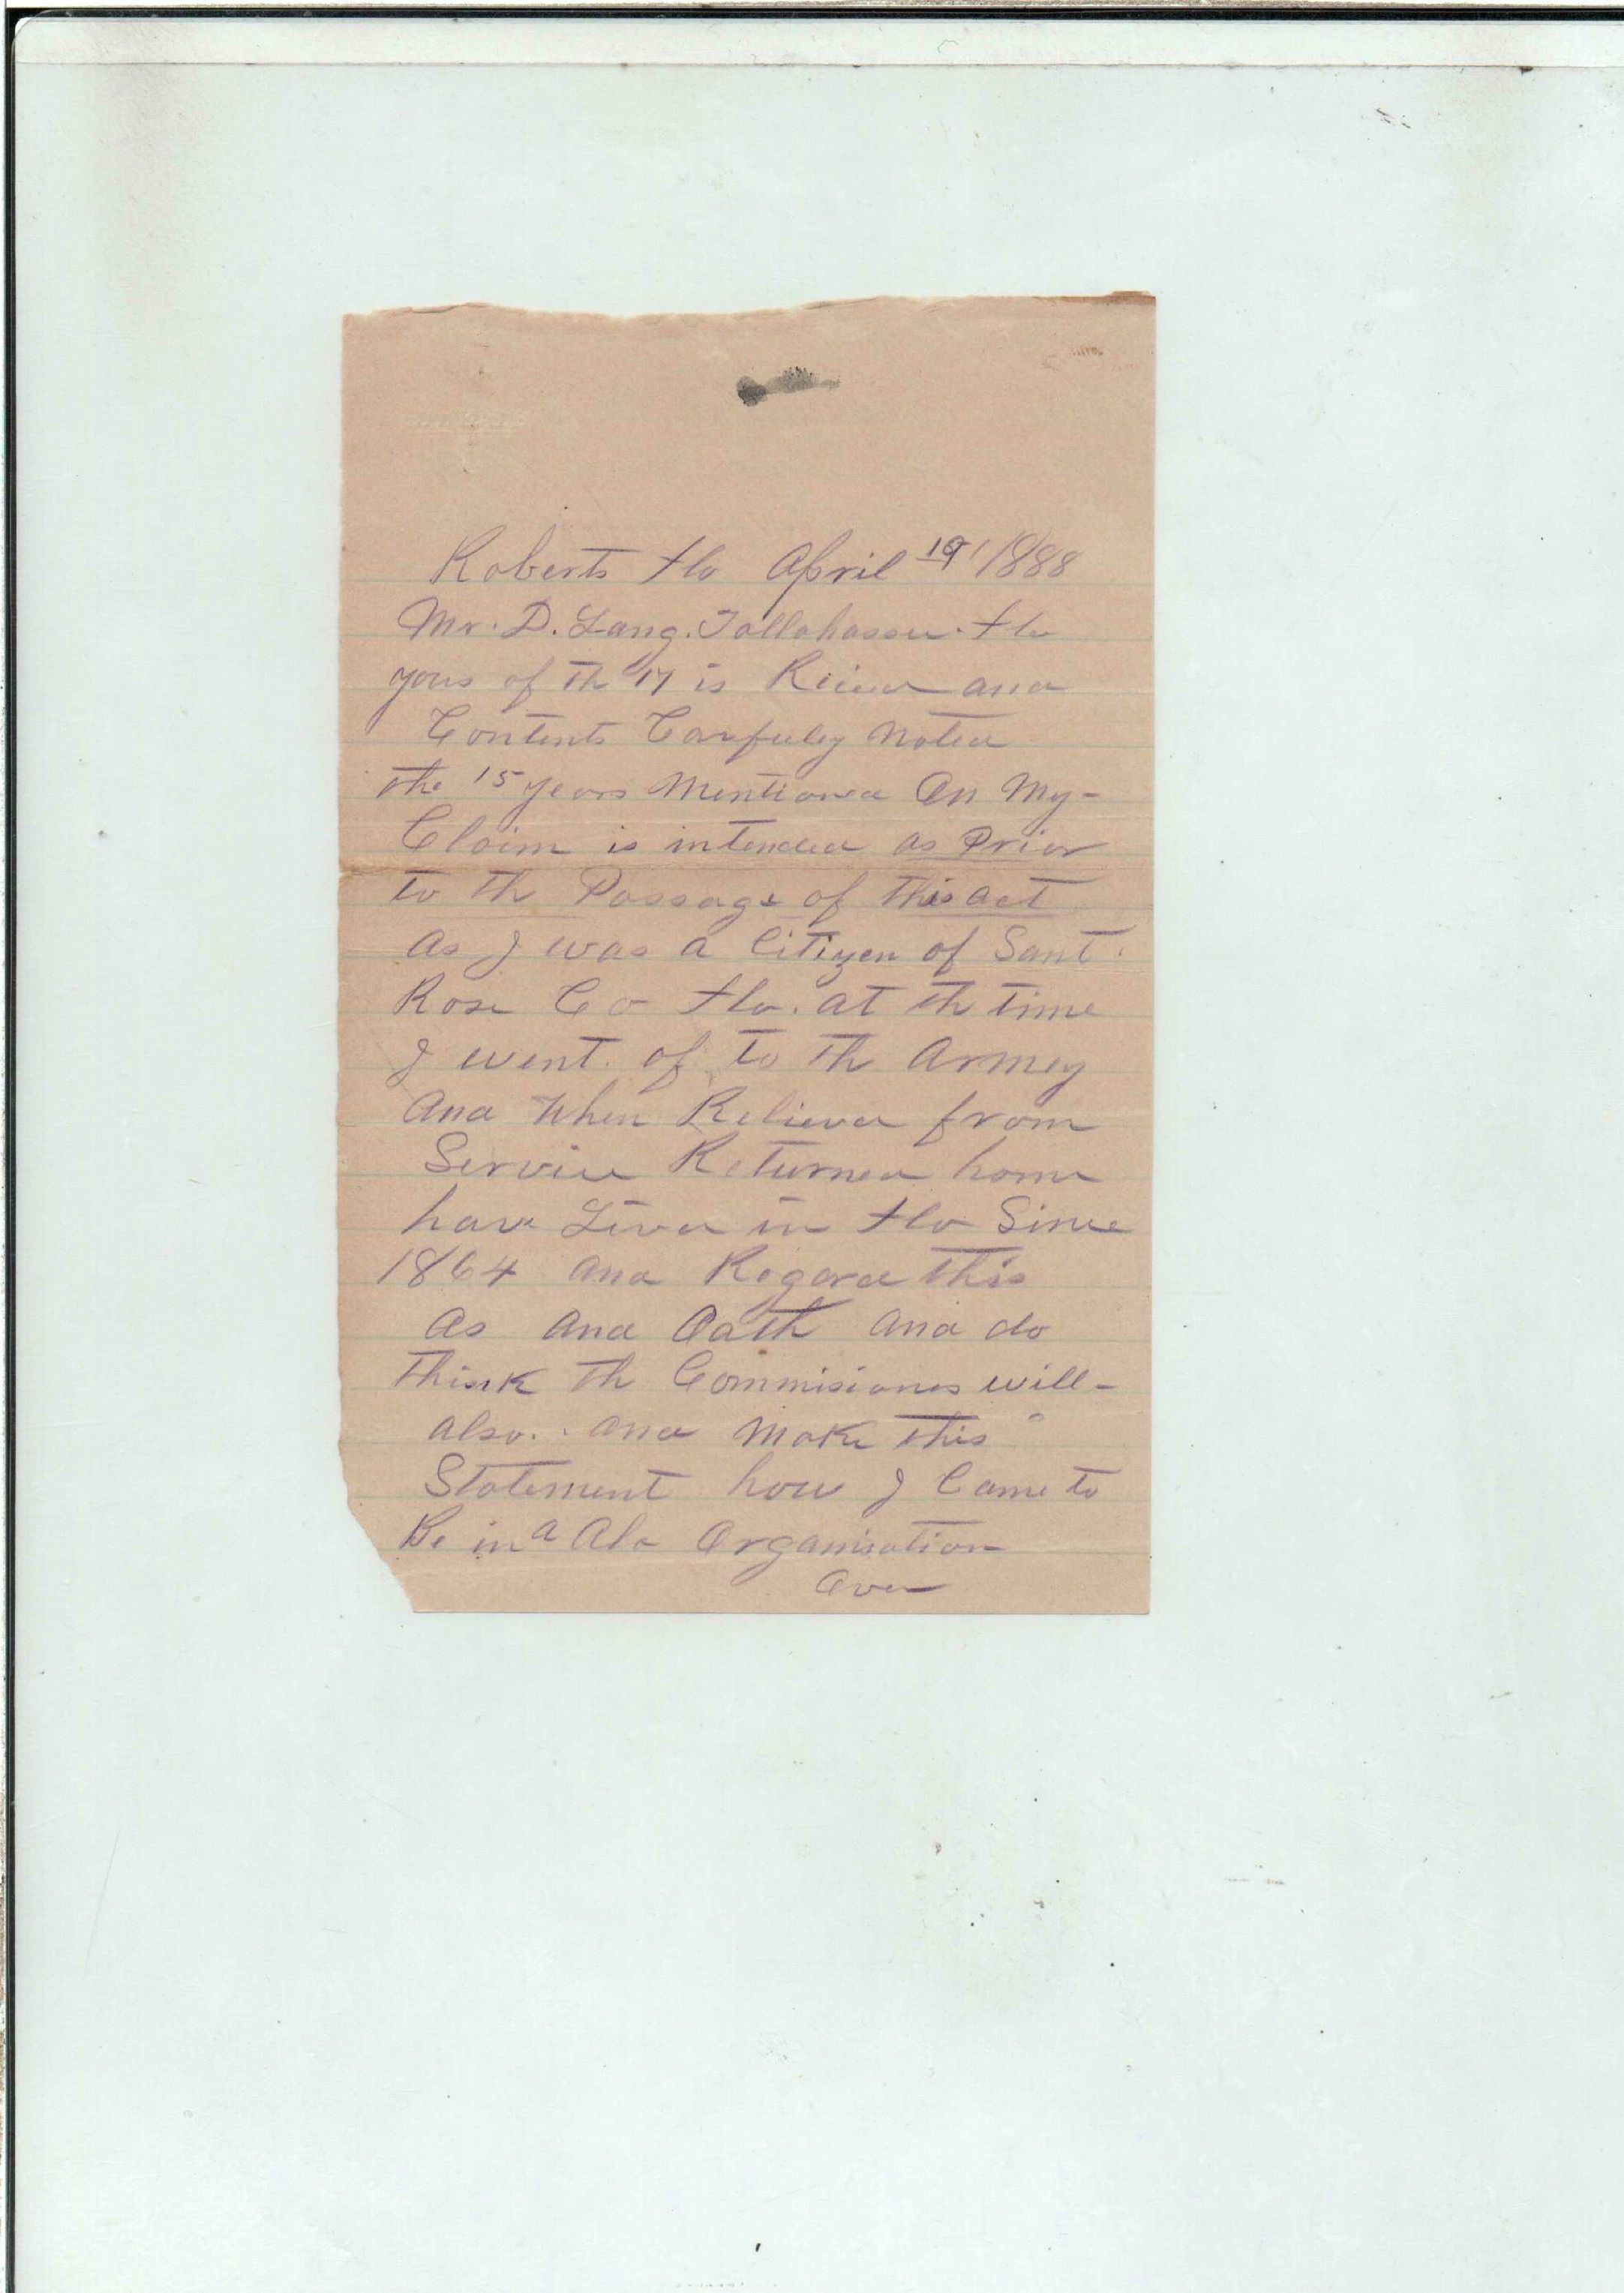 Roberts Fla April 19 / 1888
Mr. D. Lang. Tallahassee. Fla
yous of th 17 is Recived and
Contents Carfuley Noted
the 15 years Mentioned On My-
Claim is intended as Prior
to th Passage of this act
As I was a Citizen of Sant.
Rose Co Fla. at th time
I went of to th Armey
And When Relieved from
Service Returned home
have Lived in Fla Since
1864 and Regard this
As and Oath and do
think th Commisiones will-
also. and Make this
Statement how I Came to
Be in a Ala Organisation
Over